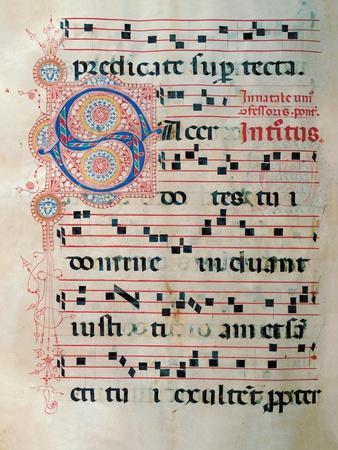 predicate sup tecta.
In natale uni
9fessoris. pont.
S Acer Introitus
do tes tu i
domine induant
iusti ti am et sā
cti tu i exultēt ꝓpter